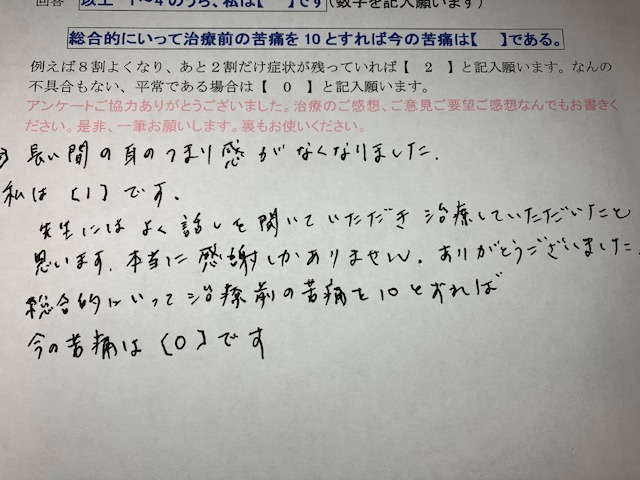 回答 以上 1～4のうち、私は【　】です（数字を記入願います）
総合的にいって治療前の苦痛を10とすれば今の苦痛は【　】である。
例えば８割よくなり、あと２割だけ症状が残っていれば【　２　】と記入願います。なんの
不具合もない、平常である場合は【　０　】と記入願います。
アンケートご協力ありがとうございました。治療のご感想、ご意見ご要望ご感想なんでもお書きく
ださい。是非、一筆お願いします。裏もお使いください。
長い間の耳のつまり感がなくなりました.
私は〔1〕です.
先生にはよく話しを聞いていただき治療していただいたこと
思います.本当に感謝しかありません。ありがとうございました.
総合的にいって治療前の苦痛を10とすれば
今の苦痛は〔0〕です